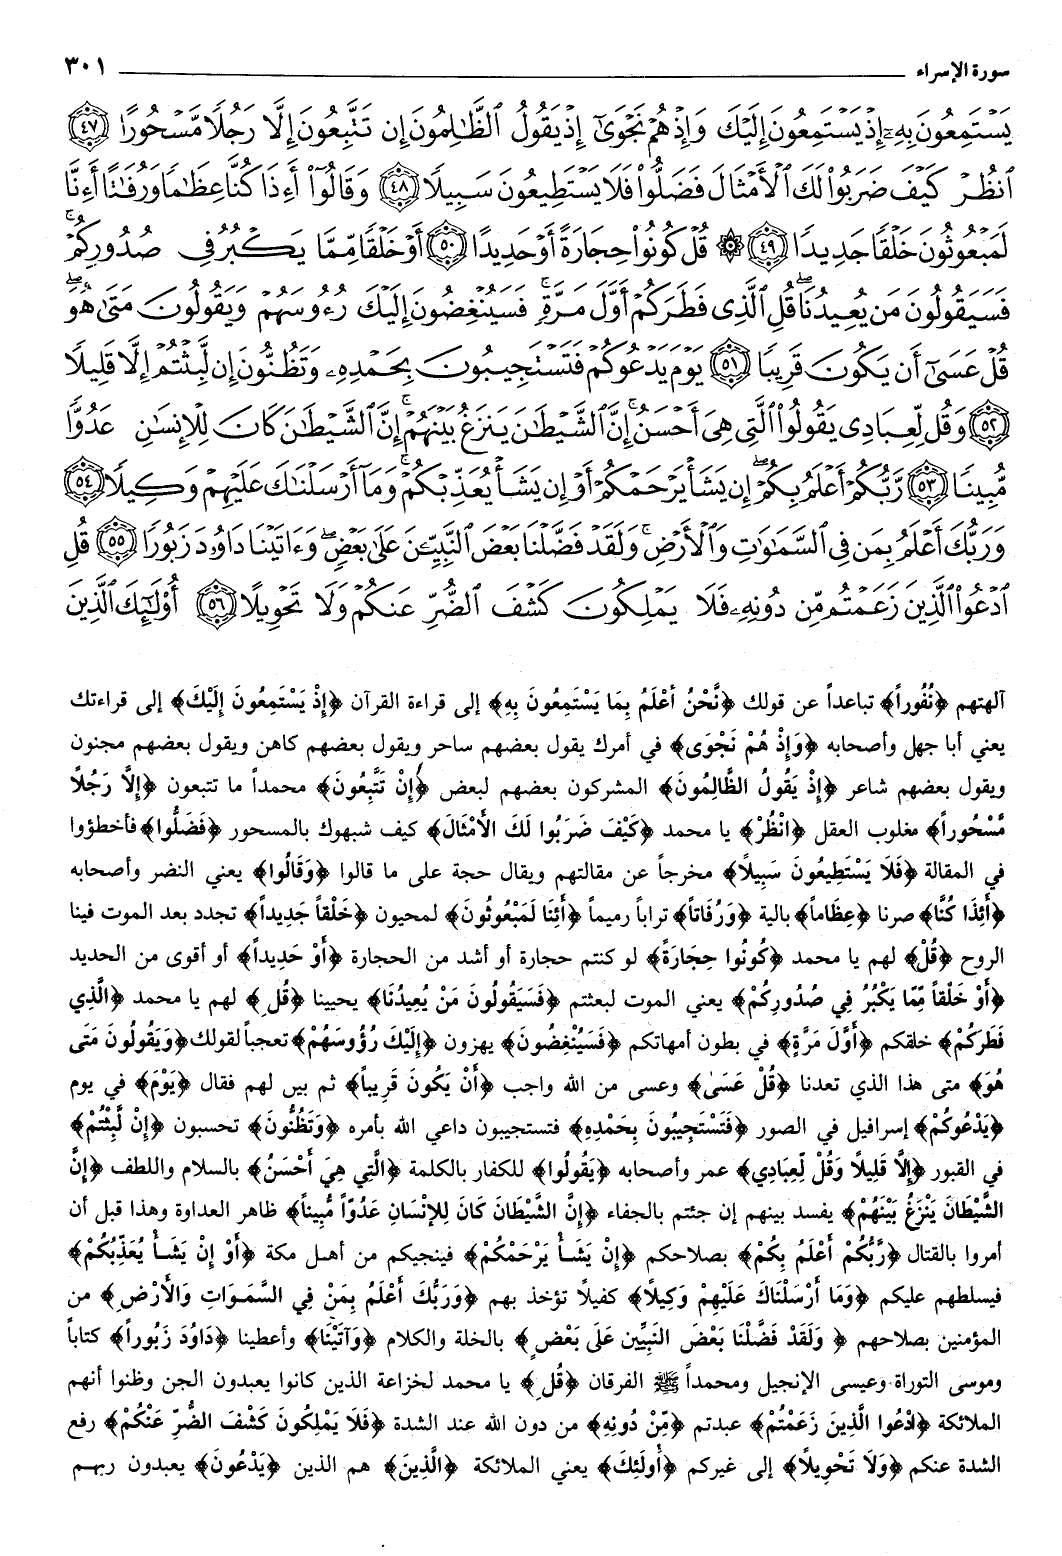 سورة الإسراء ٣٠١
يَسۡتَمِعُونَ بِهِۦٓ إِذۡ يَسۡتَمِعُونَ إِلَيۡكَ وَإِذۡ هُمۡ نَجۡوَىٰٓ إِذۡ يَقُولُ ٱلظَّٰلِمُونَ إِن تَتَّبِعُونَ إِلَّا رَجُلٗا مَّسۡحُورًا ٤٧
ٱنظُرۡ كَيۡفَ ضَرَبُواْ لَكَ ٱلۡأَمۡثَالَ فَضَلُّواْ فَلَا يَسۡتَطِيعُونَ سَبِيلٗا ٤٨ وَقَالُوٓاْ أَءِذَا كُنَّا عِظَٰمٗا وَرُفَٰتًا أَءِنَّا
لَمَبۡعُوثُونَ خَلۡقٗا جَدِيدٗا ٤٩ ۞ قُلۡ كُونُواْ حِجَارَةً أَوۡ حَدِيدًا ٥٠ أَوۡ خَلۡقٗا مِّمَّا يَكۡبُرُ فِي صُدُورِكُمۡۚ
فَسَيَقُولُونَ مَن يُعِيدُنَاۖ قُلِ ٱلَّذِي فَطَرَكُمۡ أَوَّلَ مَرَّةٖۚ فَسَيُنۡغِضُونَ إِلَيۡكَ رُءُوسَهُمۡ وَيَقُولُونَ مَتَىٰ هُوَۖ
قُلۡ عَسَىٰٓ أَن يَكُونَ قَرِيبٗا ٥١ يَوۡمَ يَدۡعُوكُمۡ فَتَسۡتَجِيبُونَ بِحَمۡدِهِۦ وَتَظُنُّونَ إِن لَّبِثۡتُمۡ إِلَّا قَلِيلٗا
٥٢ وَقُل لِّعِبَادِي يَقُولُواْ ٱلَّتِي هِيَ أَحۡسَنُۚ إِنَّ ٱلشَّيۡطَٰنَ يَنزَغُ بَيۡنَهُمۡۚ إِنَّ ٱلشَّيۡطَٰنَ كَانَ لِلۡإِنسَٰنِ عَدُوّٗا
مُّبِينٗا ٥٣ رَّبُّكُمۡ أَعۡلَمُ بِكُمۡۖ إِن يَشَأۡ يَرۡحَمۡكُمۡ أَوۡ إِن يَشَأۡ يُعَذِّبۡكُمۡۚ وَمَآ أَرۡسَلۡنَٰكَ عَلَيۡهِمۡ وَكِيلٗا ٥٤
وَرَبُّكَ أَعۡلَمُ بِمَن فِي ٱلسَّمَٰوَٰتِ وَٱلۡأَرۡضِۗ وَلَقَدۡ فَضَّلۡنَا بَعۡضَ ٱلنَّبِيِّـۧنَ عَلَىٰ بَعۡضٖۖ وَءَاتَيۡنَا دَاوُۥدَ زَبُورٗا ٥٥ قُلِ
ٱدۡعُواْ ٱلَّذِينَ زَعَمۡتُم مِّن دُونِهِۦ فَلَا يَمۡلِكُونَ كَشۡفَ ٱلضُّرِّ عَنكُمۡ وَلَا تَحۡوِيلًا ٥٦ أُوْلَٰٓئِكَ ٱلَّذِينَ
آلهتهم ﴿نُفُوراً﴾ تباعداً عن قولك ﴿نَّحْنُ أَعْلَمُ بِمَا يَسْتَمِعُونَ بِهِ﴾ إلى قراءة القرآن ﴿إِذْ يَسْتَمِعُونَ إِلَيْكَ﴾ إلى قراءتك
يعني أبا جهل وأصحابه ﴿وَإِذْ هُمْ نَجْوَى﴾ في أمرك يقول بعضهم ساحر ويقول بعضهم كاهن ويقول بعضهم مجنون
ويقول بعضهم شاعر ﴿إِذْ يَقُولُ الظَّالِمُونَ﴾ المشركون بعضهم لبعض ﴿إِنْ تَتَّبِعُونَ﴾ محمداً ما تتبعون ﴿إِلَّا رَجُلًا
مَّسْحُوراً﴾ مغلوب العقل ﴿انْظُرْ﴾ يا محمد ﴿كَيْفَ ضَرَبُوا لَكَ الْأَمْثَالَ﴾ كيف شبهوك بالمسحور ﴿فَضَلُّوا﴾ فأخطؤوا
في المقالة ﴿فَلَا يَسْتَطِيعُونَ سَبِيلًا﴾ مخرجاً عن مقالتهم ويقال حجة على ما قالوا ﴿وَقَالُوا﴾ يعني النضر وأصحابه
﴿أَئِذَا كُنَّا﴾ صرنا ﴿عِظَاماً﴾ بالية ﴿وَرُفَاتاً﴾ تراباً رميماً ﴿أَئِنَا لَمَبْعُوثُونَ﴾ لمحيون ﴿خَلْقاً جَدِيداً﴾ تجدد بعد الموت فينا
الروح ﴿قُلْ﴾ لهم يا محمد ﴿كُونُوا حِجَارَةً﴾ لو كنتم حجارة أو أشد من الحجارة ﴿أَوْ حَدِيداً﴾ أو أقوى من الحديد
﴿أَوْ خَلْقاً مِّمَّا يَكْبُرُ فِي صُدُورِكُمْ﴾ يعني الموت لبعثتم ﴿فَسَيَقُولُونَ مَنْ يُعِيدُنَا﴾ يحيينا ﴿قُلِ﴾ لهم يا محمد ﴿الَّذِي
فَطَرَكُمْ﴾ خلقكم ﴿أَوَّلَ مَرَّةٍ﴾ في بطون أمهاتكم ﴿فَسَيُنْغِضُونَ﴾ يهزون ﴿إِلَيْكَ رُؤُوسَهُمْ﴾ تعجباً لقولك ﴿وَيَقُولُونَ مَتَى
هُوَ﴾ متى هذا الذي تعدنا ﴿قُلْ عَسَىٰ﴾ وعسى من الله واجب ﴿أَنْ يَكُونَ قَرِيباً﴾ ثم بين لهم فقال ﴿يَوْمَ﴾ في يوم
﴿يَدْعُوكُمْ﴾ إسرافيل في الصور ﴿فَتَسْتَجِيبُونَ بِحَمْدِهِ﴾ فتستجيبون داعي الله بأمره ﴿وَتَظُنُّونَ﴾ تحسبون ﴿إِنْ لَّبِثْتُمْ﴾
في القبور ﴿إِلَّا قَلِيلًا وَقُلْ لِّعِبَادِي﴾ عمر وأصحابه ﴿يَقُولُوا﴾ للكفار بالكلمة ﴿الَّتِي هِيَ أَحْسَنُ﴾ بالسلام واللطف ﴿إِنَّ
الشَّيْطَانَ يَنْزَغُ بَيْنَهُمْ﴾ يفسد بينهم إن جئتم بالجفاء ﴿إِنَّ الشَّيْطَانَ كَانَ لِلإِنْسَانِ عَدُوّاً مُّبِيناً﴾ ظاهر العداوة وهذا قبل أن
أمروا بالقتال ﴿رَّبُّكُمْ أَعْلَمُ بِكُمْ﴾ بصلاحكم ﴿إِنْ يَشَأْ يَرْحَمْكُمْ﴾ فينجيكم من أهل مكة ﴿أَوْ إِنْ يَشَأْ يُعَذِّبْكُمْ﴾
فيسلطهم عليكم ﴿وَمَا أَرْسَلْنَاكَ عَلَيْهِمْ وَكِيلًا﴾ كفيلاً تؤخذ بهم ﴿وَرَبُّكَ أَعْلَمُ بِمَنْ فِي السَّمَوَاتِ وَالْأَرْضِ﴾ من
المؤمنين بصلاحهم ﴿وَلَقَدْ فَضَّلْنَا بَعْضَ النَبِيِّين عَلَى بَعْضٍ﴾ بالخلة والكلام ﴿وَآتَيْنَا﴾ وأعطينا ﴿دَاوُدَ زَبُوراً﴾ كتاباً
وموسى التوراة وعيسى الإنجيل ومحمداً ﷺ الفرقان ﴿قُلِ﴾ يا محمد لخزاعة الذين كانوا يعبدون الجن وظنوا أنهم
الملائكة ﴿ادْعُوا الَّذِينَ زَعَمْتُمْ﴾ عبدتم ﴿مِّنْ دُونِهِ﴾ من دون الله عند الشدة ﴿فَلَا يَمْلِكُونَ كَشْفَ الضُّرِّ عَنْكُمْ﴾ رفع
الشدة عنكم ﴿وَلَا تَحْوِيلًا﴾ إلى غيركم ﴿أُولَئِكَ﴾ يعني الملائكة ﴿الَّذِينَ﴾ هم الذين ﴿يَدْعُونَ﴾ يعبدون ربهم